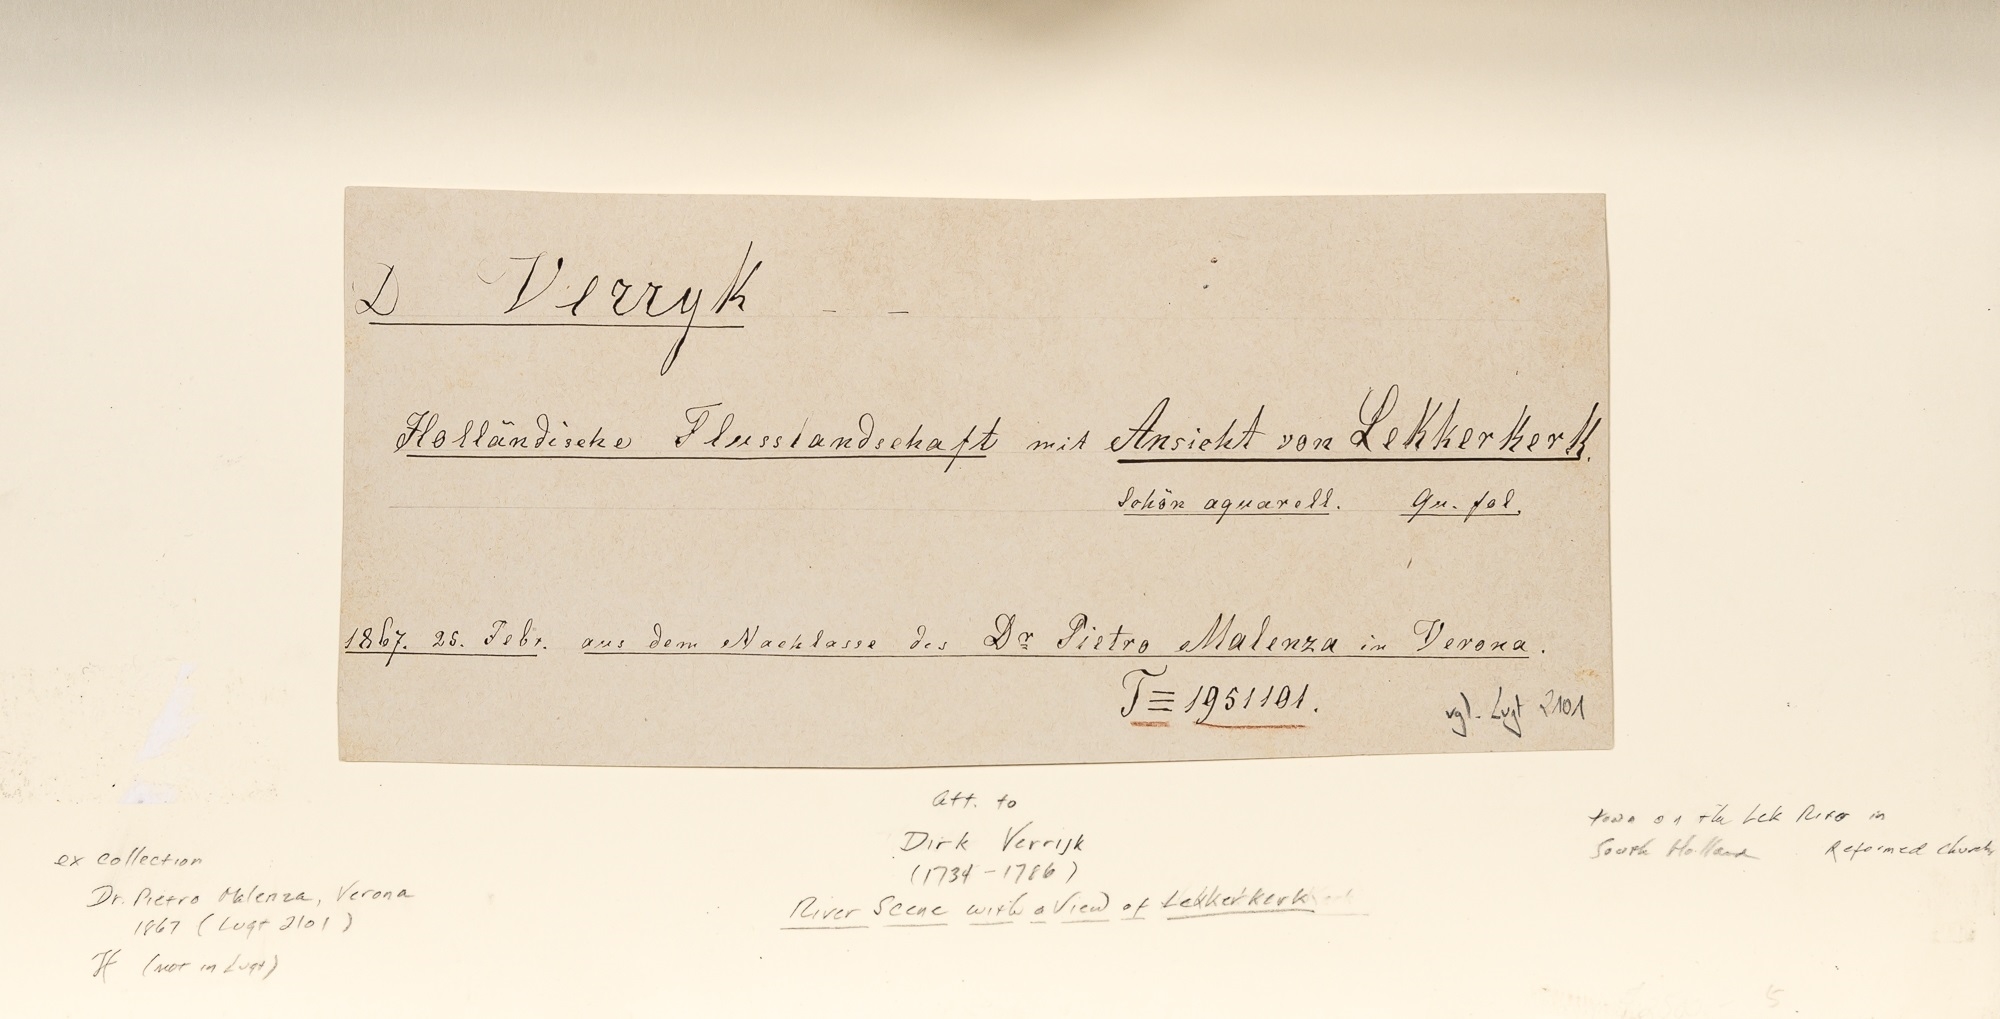 D Verryk
Holländische Flusslandschaft mit Ansicht von Lekkerkerk.
Schön aquarell. Qu. fol.
1867. 25. Febr. aus dem Nachlasse des Dr Pietro Malenza in Verona.
T≡ 1951101.
vgl. Lugt 2101
Att. to
Dirk Verrijk
(1734-1786)
River Scene with a View of Lekkerkerk
ex collection
Dr. Pietro Malenza, Verona
1867 (Lugt 2101)
H (not in Lugt)
town on the Lek River in
South Holland Reformed Church
5